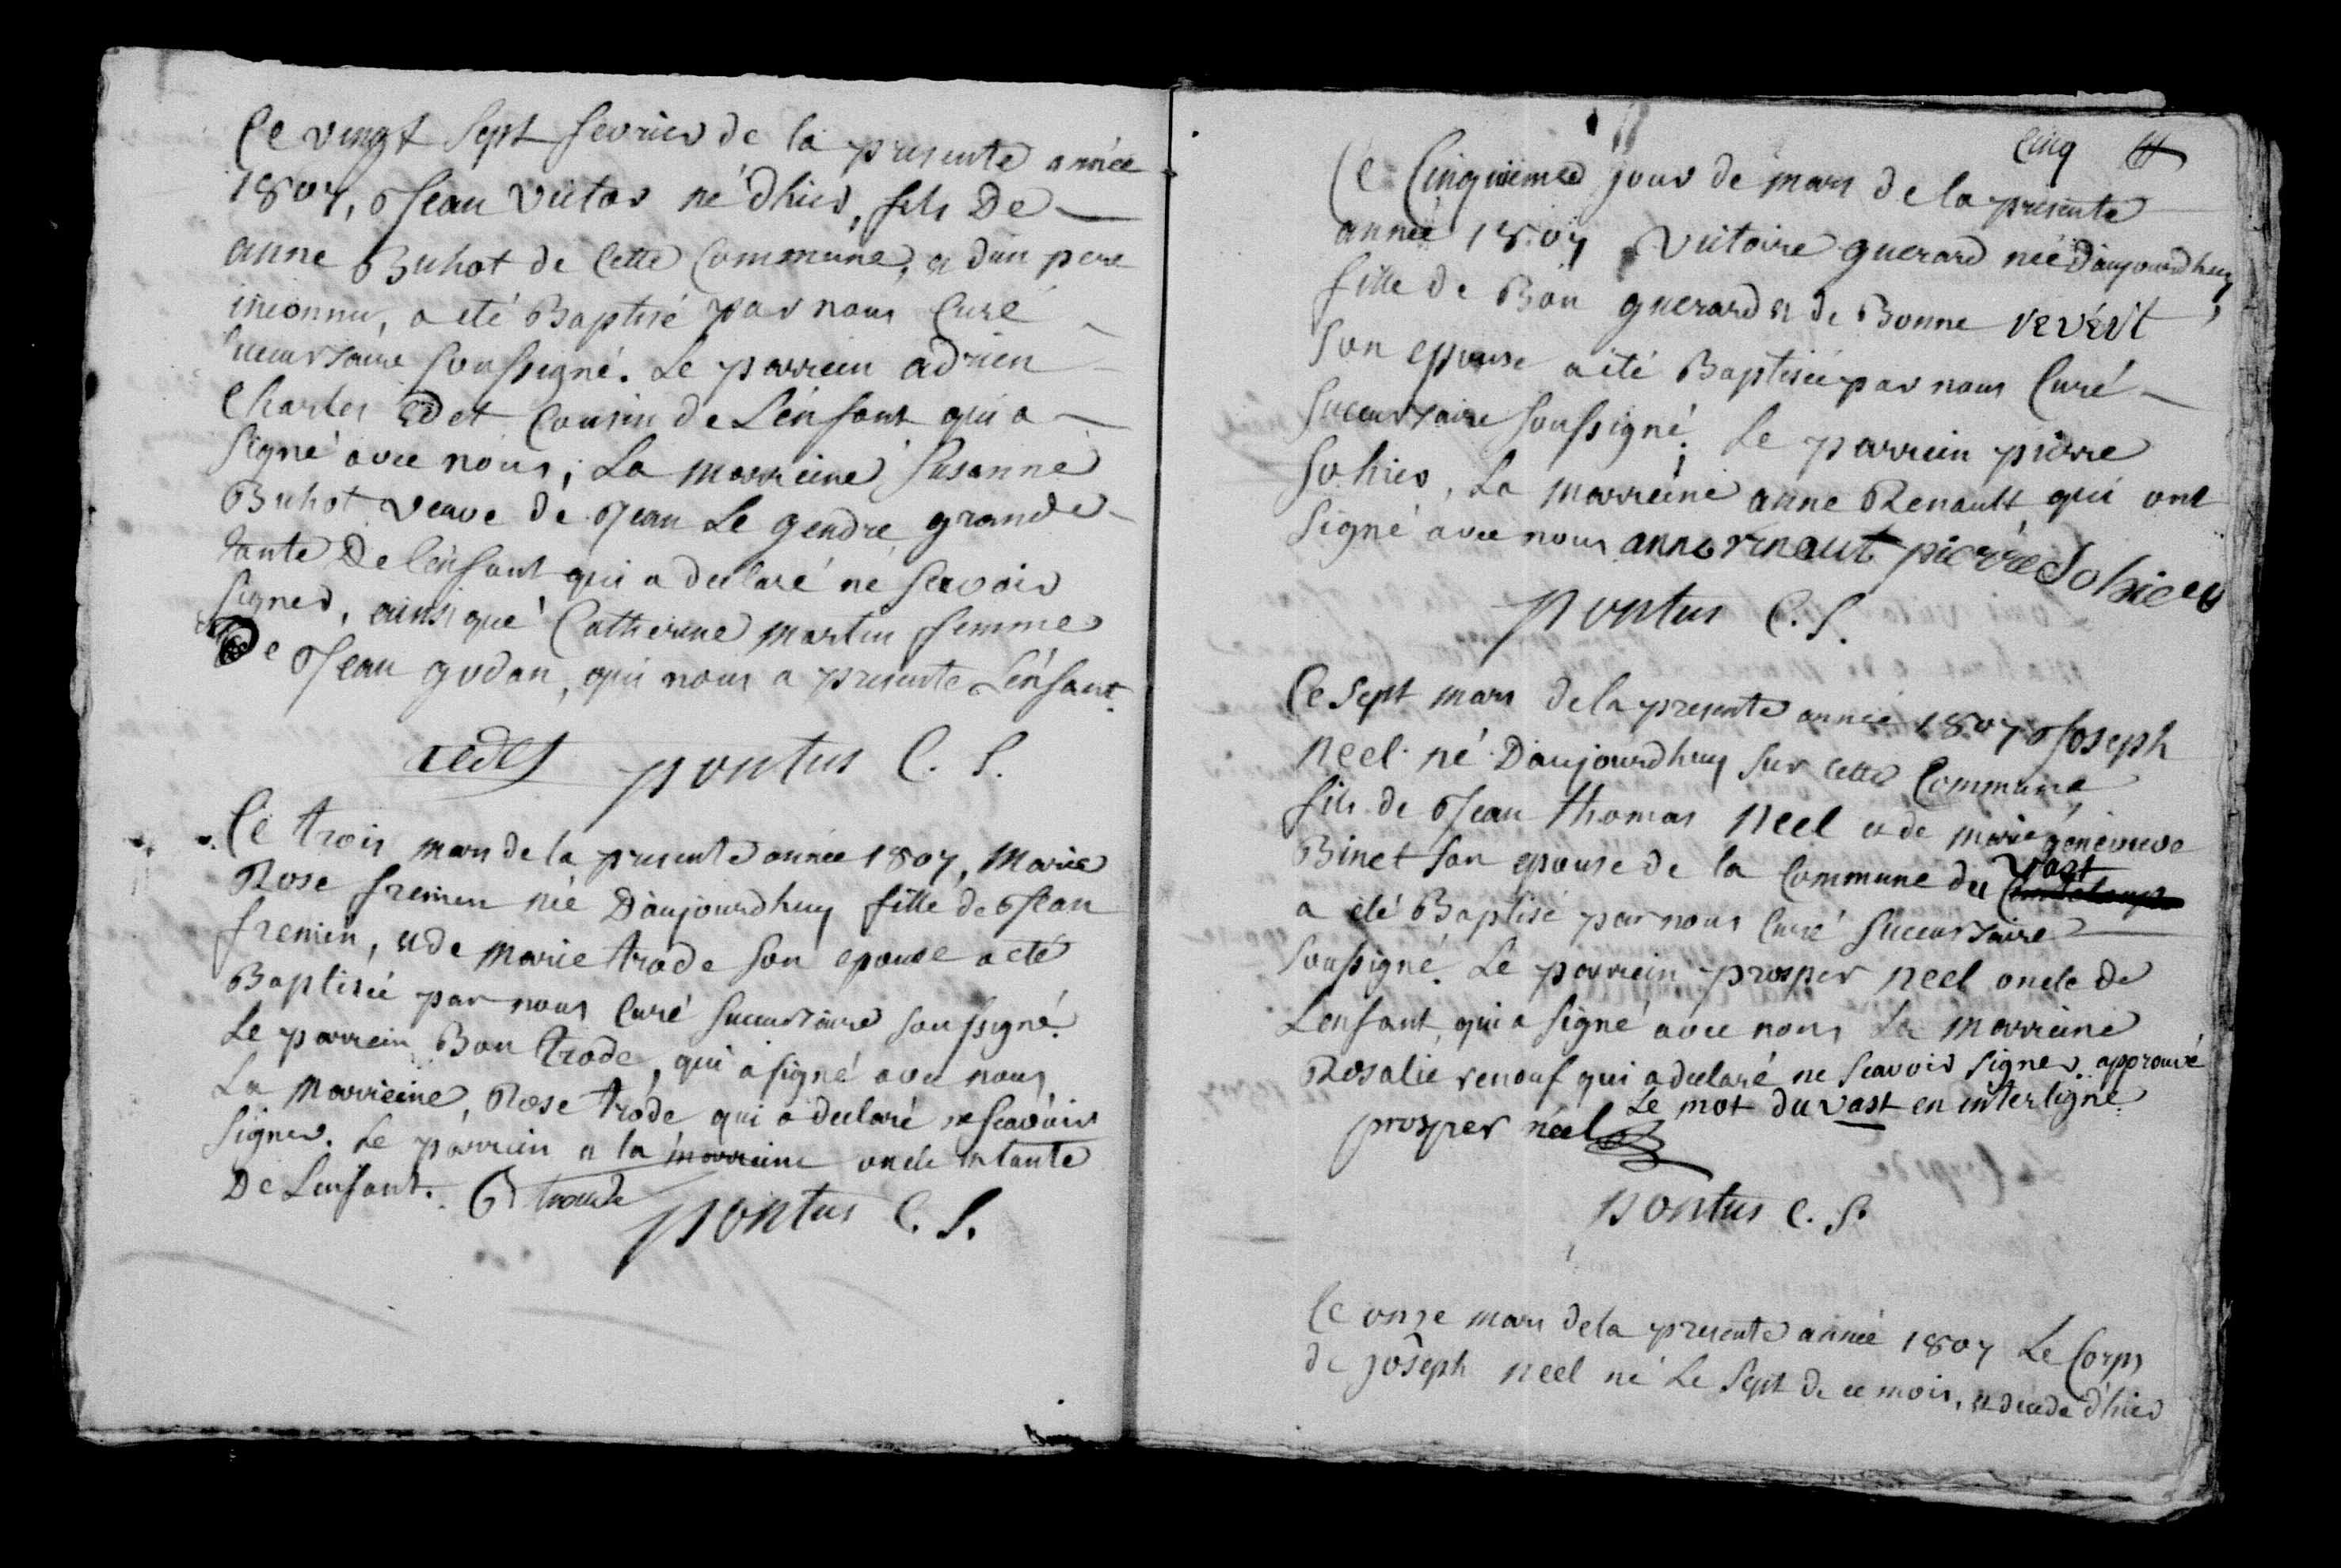 Ce vingt sept fevrier de la presente année
1807, Jean victor né d'hier, fils De
anne Buhot de Cette Commune, et d'un pere
inconnu, a eté Baptisé par nous Curé
succursaire soussigné. Le parrein adrien
Charles Edet Cousin de L'enfant qui a
signé avec nous, La marreine Susanne
Buhot veave de Jean Le gendre grande
tante De l'enfant qui a declaré ne scavoir
signer, ainsi que Catherine martin femme
De Jean godan, qui nous a presenté L'enfant.
edet pontus C. S.
Ce trois mars de la presente année 1807, Marie
Rose fremin née D'aujourdhuy fille de Jean
fremin, et de marie trode son epouse a eté
Baptisée par nous Curé succursaire soussigné.
Le parrein Bon trode, qui a signé avec nous
La Marreine, Rose trode qui a declaré ne scavoir
signer. Le parrein et la marreine oncle et tante
De L'enfant. B trode
pontus C. S.
Cinq
Ce Cinquieme jour de mars de la presente
année 1807 Victoire guerard née D'aujourdhuy
fille de Bon guerard et de Bonne revért
son epouse a eté Baptisée par nous Curé
succursaire soussigné. Le parrein pierre
Sohier, La marreine anne Renault qui ont
signé avec nous anne renaut pierre Sohier
pontus C. S.
Ce sept mars de la presente année 1807 Joseph
Neel né D'aujourdhuy sur cette Commune
fils de Jean thomas Neel et de marie genevieve
Binet son epouse de la Commune du vast
a eté Baptisé par nous Curé succursaire
soussigné. Le parrein prosper neel oncle de
L'enfant, qui a signé avec nous La marreine
Rosalie renouf qui a declaré ne scavoir signer. approuvé
Le mot du vast en interligne
prosper néel
pontus C. S.
Ce onze mars de la presente année 1807 Le Corps
de joseph neel né Le sept de ce mois, et decedé d'hier